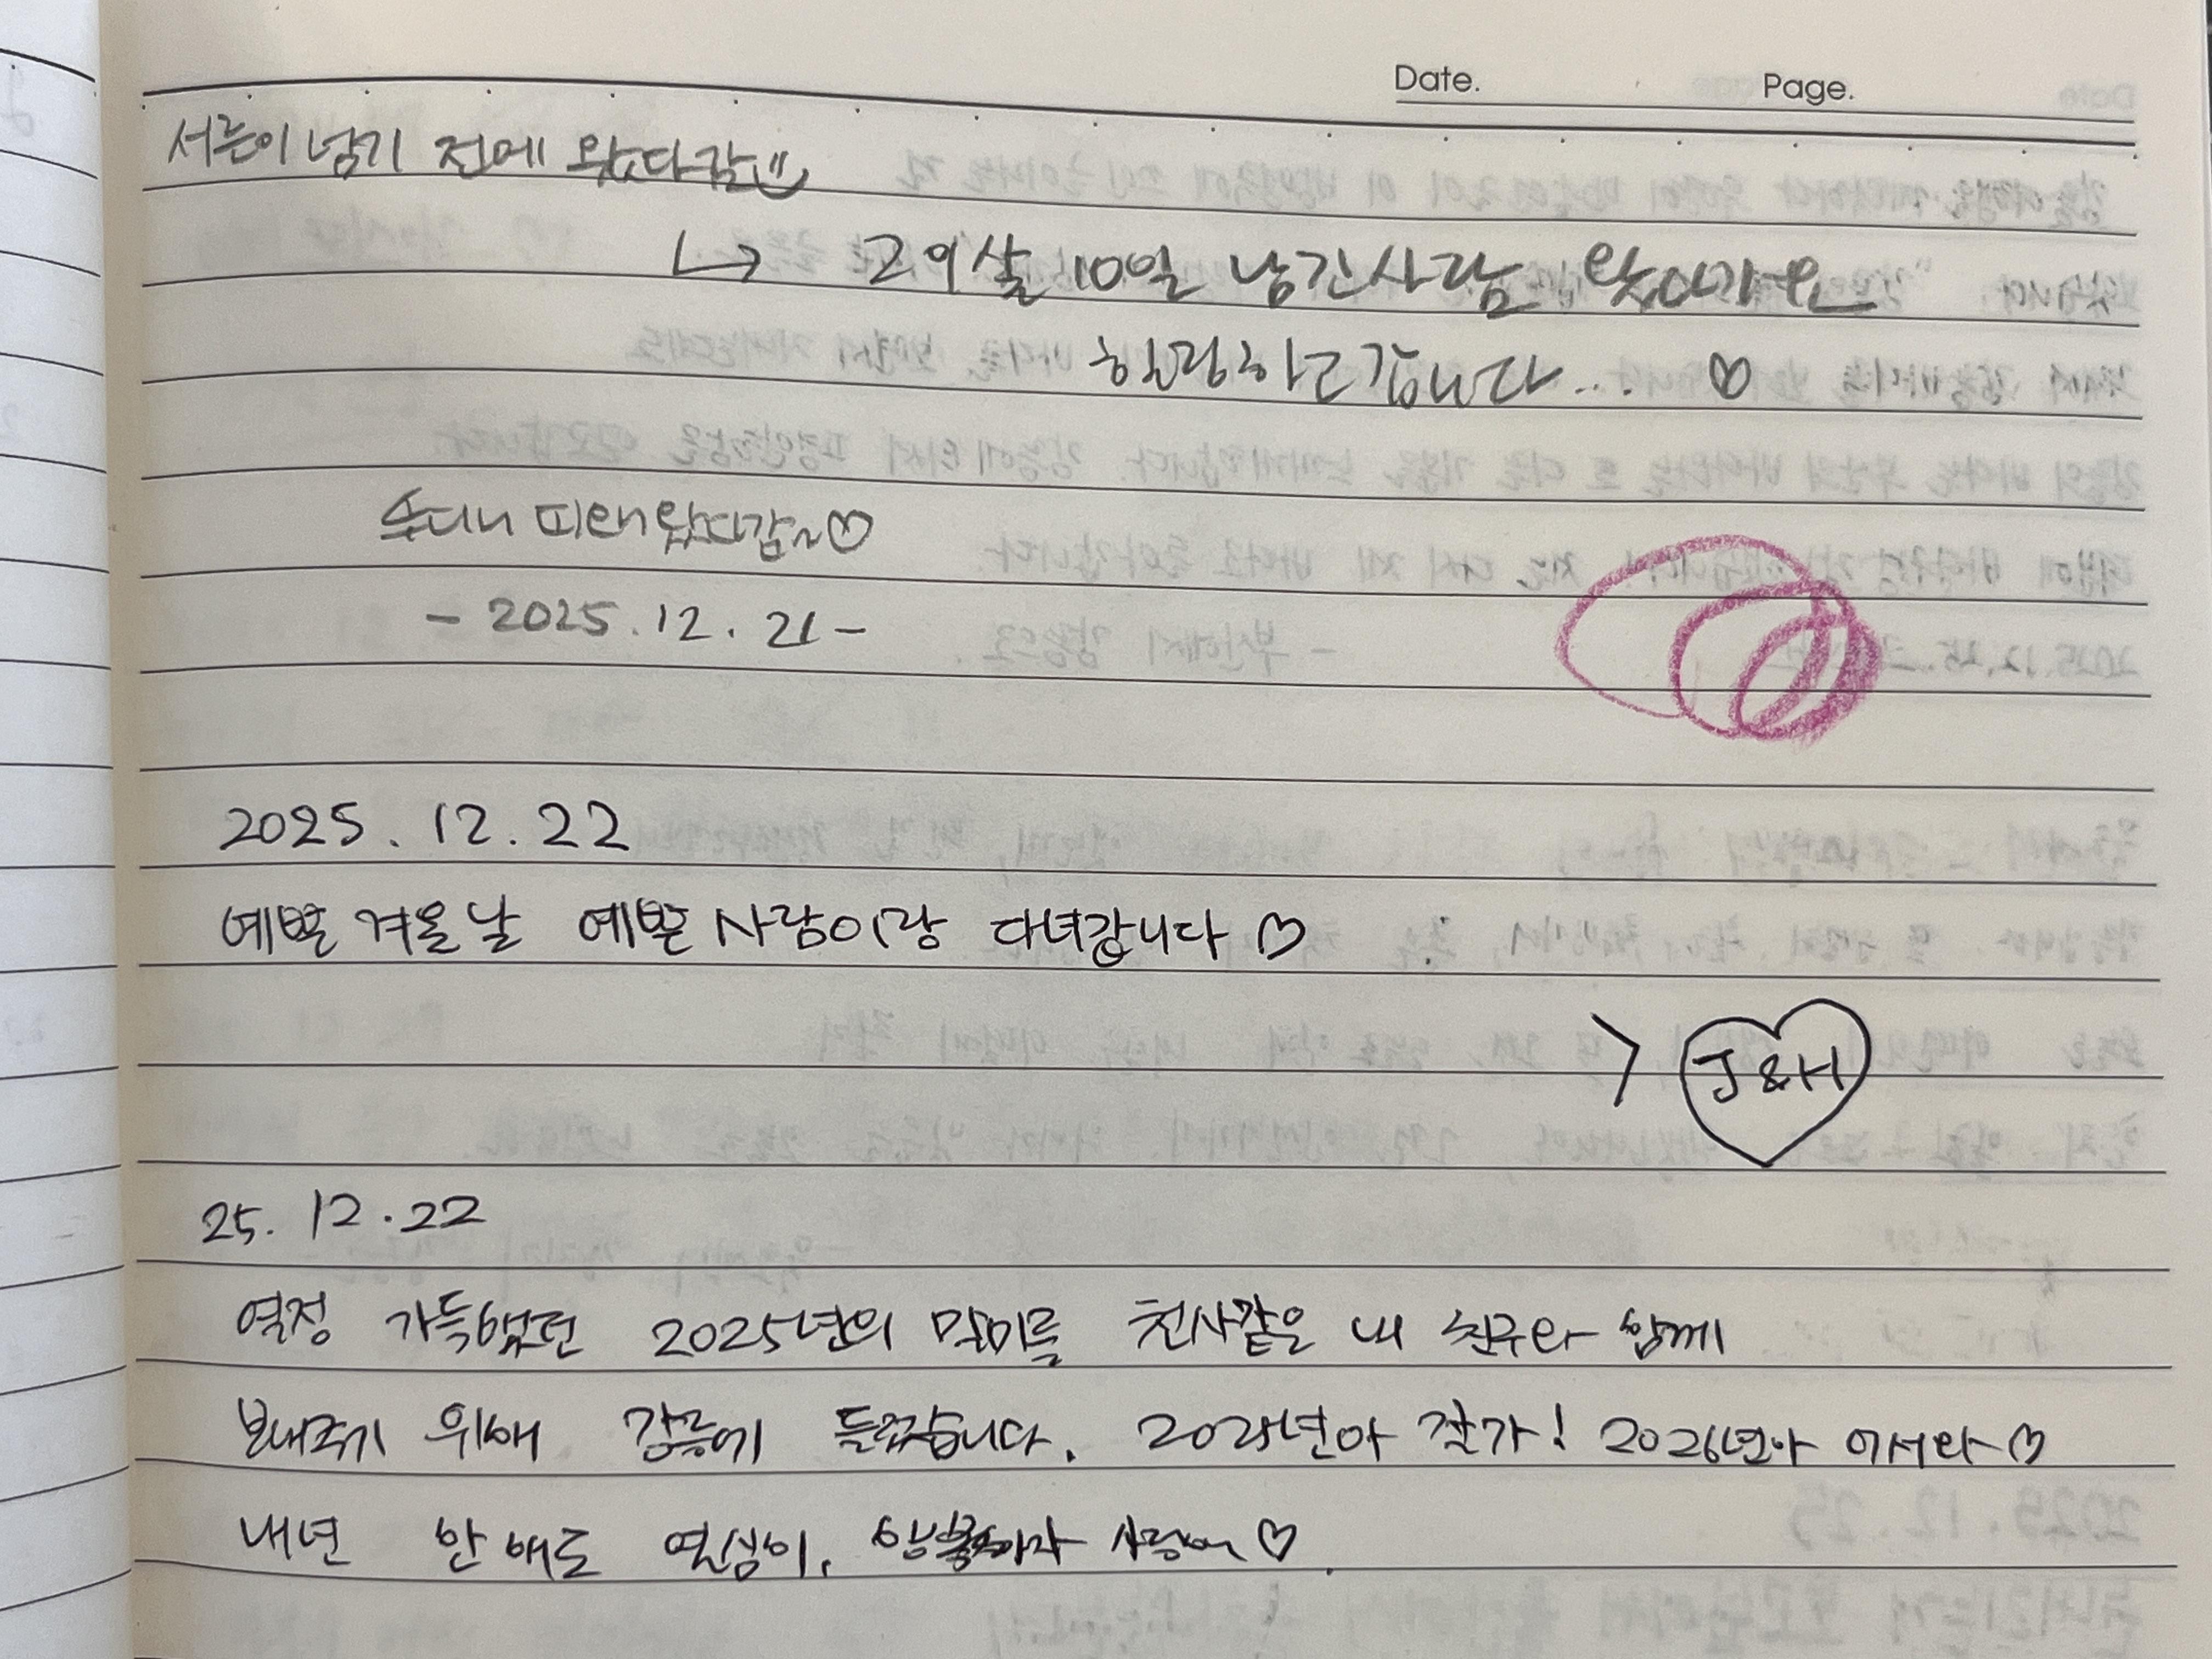 Date. Page.
서른이 넘기 전에 왔다감
↳ 29살 10일 남긴사람 왔다가요
힐링하고 갑니다... ♡
왔다감~♡
- 2025.12.21 -
2025.12.22
예쁜 겨울날 예쁜 사람이랑 다녀갑니다 ♡
> J&H
25.12.22
열정 가득했던 2025년의 말미를 천사같은 내 친구와 함께
보내주기 위해 강릉에 들렀습니다. 2025년아 잘가! 2026년아 어서와♡
내년 한 해도 열심히, 사랑해♡